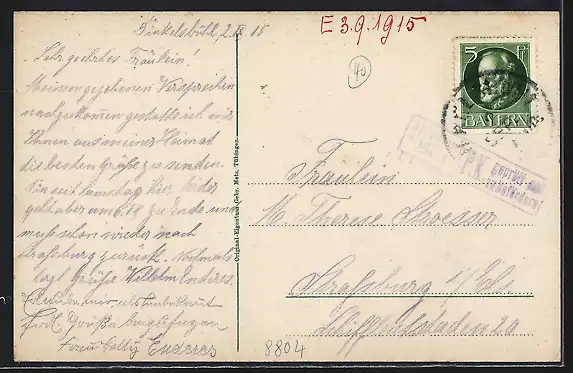 Dinkelsbühl, 2.IX 15
Sehr geehrtes Fräulein!
Meinem gegebenen Versprechen
nachzukommen gestatte ich mir
Ihnen aus meiner Heimat
die besten Grüße zu senden.
Bin seit Samstag hier, leider
geht aber am 6.IX zu Ende und
muß schon wieder nach
Straßburg zurück. Nochmals
Grüße Wilhelm Enderes.
als Unbekannt
Grüße
Frau Enderes
Original-Eigentum Gebr. Metz, Tübingen.
E 3.9.1915
40
5 Pf
BAYERN
P.K.
Fräulein
M. Therese Stroesser
Straßburg i/Els
Schiffleutstaden 20
8804